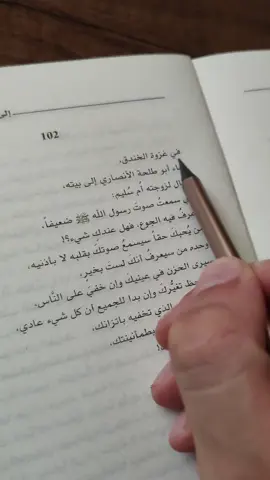 إلى
102
في غزوة الخندق،
جاء أبو طلحة الأنصاري إلى بيته،
قال لزوجته أم سُليم:
سمعتُ صوتَ رسول الله ﷺ ضعيفاً،
أعرفُ فيه الجوع، فهل عندكِ شيء؟!
من يُحبكَ حقاً سيسمعُ صوتكَ بقلبه لا بأذنيه،
وحده من سيعرفُ أنكَ لستَ بخيرٍ
سيرى الحزن في عينيكَ وإن خفيَ على النَّاس،
تغيُّركَ وإن بدا للجميع أن كل شيء عادي،
الذي تخفيه باتزانك،
بطمأنينتك